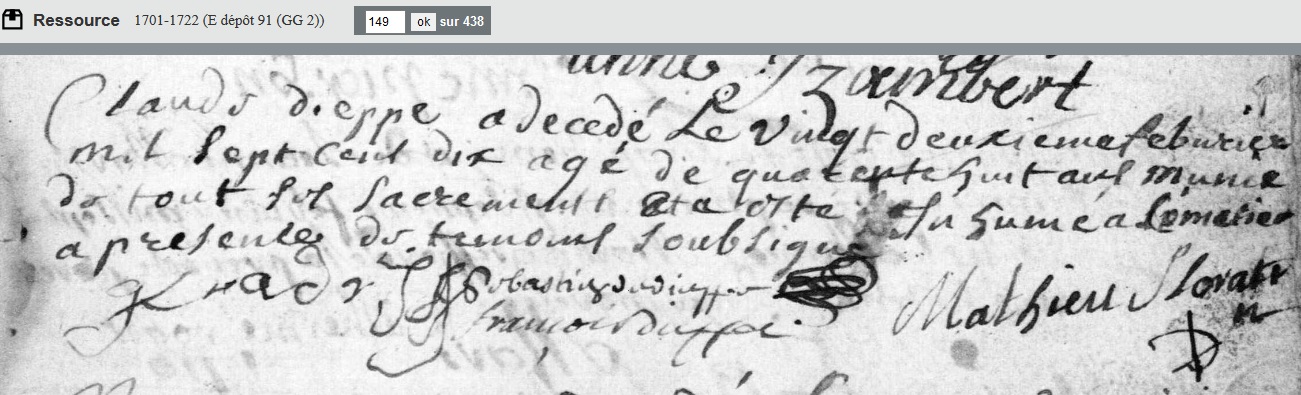 Ressource 1701-1722 (E dépôt 91 (GG 2)) 149 ok sur 438
anne Jzambert
Claude dieppe a decedé Le vingt deuxieme feburier
mil sept cent dix agé de quarente huit ans munie
de tout ses sacrements et a esté Inhumé a
a presence de temoins soubsigne
Sebastien de dieppe
francois dieppe
Mathieu